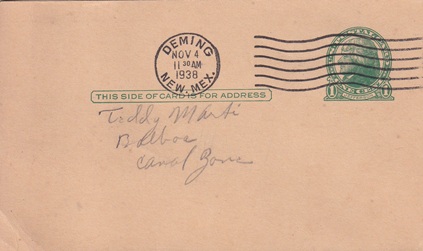 DEMING
NOV 4
11 30 AM
1938
NEW. MEX.
THIS SIDE OF CARD IS FOR ADDRESS
1 1
Teddy Marti
Balboa
Canal Zone